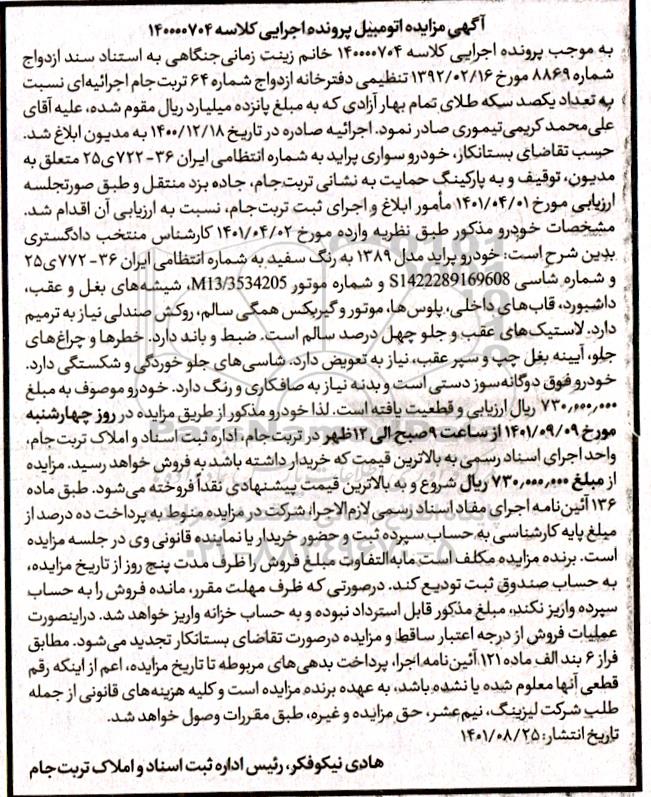 آگهی مزایده اتومبیل پرونده اجرایی کلاسه ۱۴۰۰۰۰۷۰۴
به موجب پرونده اجرایی کلاسه ۱۴۰۰۰۰۷۰۴ خانم زینت زمانی‌جنگاهی به استناد سند ازدواج
شماره ۸۸۶۹ مورخ ۱۳۹۲/۰۲/۱۶ تنظیمی دفترخانه ازدواج شماره ۶۴ تربت‌جام اجرائیه‌ای نسبت
به تعداد یکصد سکه طلای تمام بهار آزادی که به مبلغ پانزده میلیارد ریال مقوم شده، علیه آقای
علی‌محمد کریمی‌تیموری صادر نمود. اجرائیه صادره در تاریخ ۱۴۰۰/۱۲/۱۸ به مدیون ابلاغ شد.
حسب تقاضای بستانکار، خودرو سواری پراید به شماره انتظامی ایران ۳۶-۷۲۲ی۲۵ متعلق به
مدیون، توقیف و به پارکینگ حمایت به نشانی تربت‌جام، جاده یزد منتقل و طبق صورتجلسه
ارزیابی مورخ ۱۴۰۱/۰۴/۰۱ مأمور ابلاغ و اجرای ثبت تربت‌جام، نسبت به ارزیابی آن اقدام شد.
مشخصات خودرو مذکور طبق نظریه وارده مورخ ۱۴۰۱/۰۴/۰۲ کارشناس منتخب دادگستری
بدین شرح است: خودرو پراید مدل ۱۳۸۹ به رنگ سفید به شماره انتظامی ایران ۳۶-۷۷۲ی۲۵
و شماره شاسی S1422289169608 و شماره موتور M13/3534205، شیشه‌های بغل و عقب،
داشبورد، قاب‌های داخلی، پلوس‌ها، موتور و گیربکس همگی سالم، روکش صندلی نیاز به ترمیم
دارد. لاستیک‌های عقب و جلو چهل درصد سالم است. ضبط و باند دارد. خطرها و چراغ‌های
جلو، آیینه بغل چپ و سپر عقب، نیاز به تعویض دارد. شاسی‌های جلو خوردگی و شکستگی دارد.
خودرو فوق دوگانه‌سوز دستی است و بدنه نیاز به صافکاری و رنگ دارد. خودرو موصوف به مبلغ
۷۳۰,۰۰۰,۰۰۰ ریال ارزیابی و قطعیت یافته است. لذا خودرو مذکور از طریق مزایده در روز چهارشنبه
مورخ ۱۴۰۱/۰۹/۰۹ از ساعت ۹صبح الی ۱۲ظهر در تربت‌جام، اداره ثبت اسناد و املاک تربت‌جام،
واحد اجرای اسناد رسمی به بالاترین قیمت که خریدار داشته باشد به فروش خواهد رسید. مزایده
از مبلغ ۷۳۰,۰۰۰,۰۰۰ ریال شروع و به بالاترین قیمت پیشنهادی نقداً فروخته می‌شود. طبق ماده
۱۳۶ آئین‌نامه اجرای مفاد اسناد رسمی لازم‌الاجرا، شرکت در مزایده منوط به پرداخت ده درصد از
مبلغ پایه کارشناسی به حساب سپرده ثبت و حضور خریدار یا نماینده قانونی وی در جلسه مزایده
است. برنده مزایده مکلف است مابه‌التفاوت مبلغ فروش را ظرف مدت پنج روز از تاریخ مزایده،
به حساب صندوق ثبت تودیع کند. درصورتی که ظرف مهلت مقرر، مانده فروش را به حساب
سپرده واریز نکند، مبلغ مذکور قابل استرداد نبوده و به حساب خزانه واریز خواهد شد. دراینصورت
عملیات فروش از درجه اعتبار ساقط و مزایده درصورت تقاضای بستانکار تجدید می‌شود. مطابق
فراز ۶ بند الف ماده ۱۲۱ آئین‌نامه اجرا، پرداخت بدهی‌های مربوطه تا تاریخ مزایده، اعم از اینکه رقم
قطعی آنها معلوم شده یا نشده باشد، به عهده برنده مزایده است و کلیه هزینه‌های قانونی از جمله
طلب شرکت لیزینگ، نیم‌عشر، حق مزایده و غیره، طبق مقررات وصول خواهد شد.
تاریخ انتشار: ۱۴۰۱/۰۸/۲۵
هادی نیکوفکر، رئیس اداره ثبت اسناد و املاک تربت‌جام